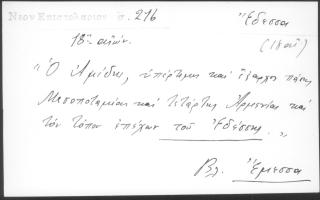 Νεον Επιστολαριον σ. 216 Ἔδεσσα
18ος αἰών. (18ος)
"Ὁ Ἀμίδης, ὑπέρτιμος καὶ ἔξαρχος πάσης
Μεσοποταμίας καὶ τετάρτης Ἀρμενίας καὶ
τὸν τόπον ἐπέχων τοῦ Ἐδέσσης."
Βλ. Ἔμεσσα